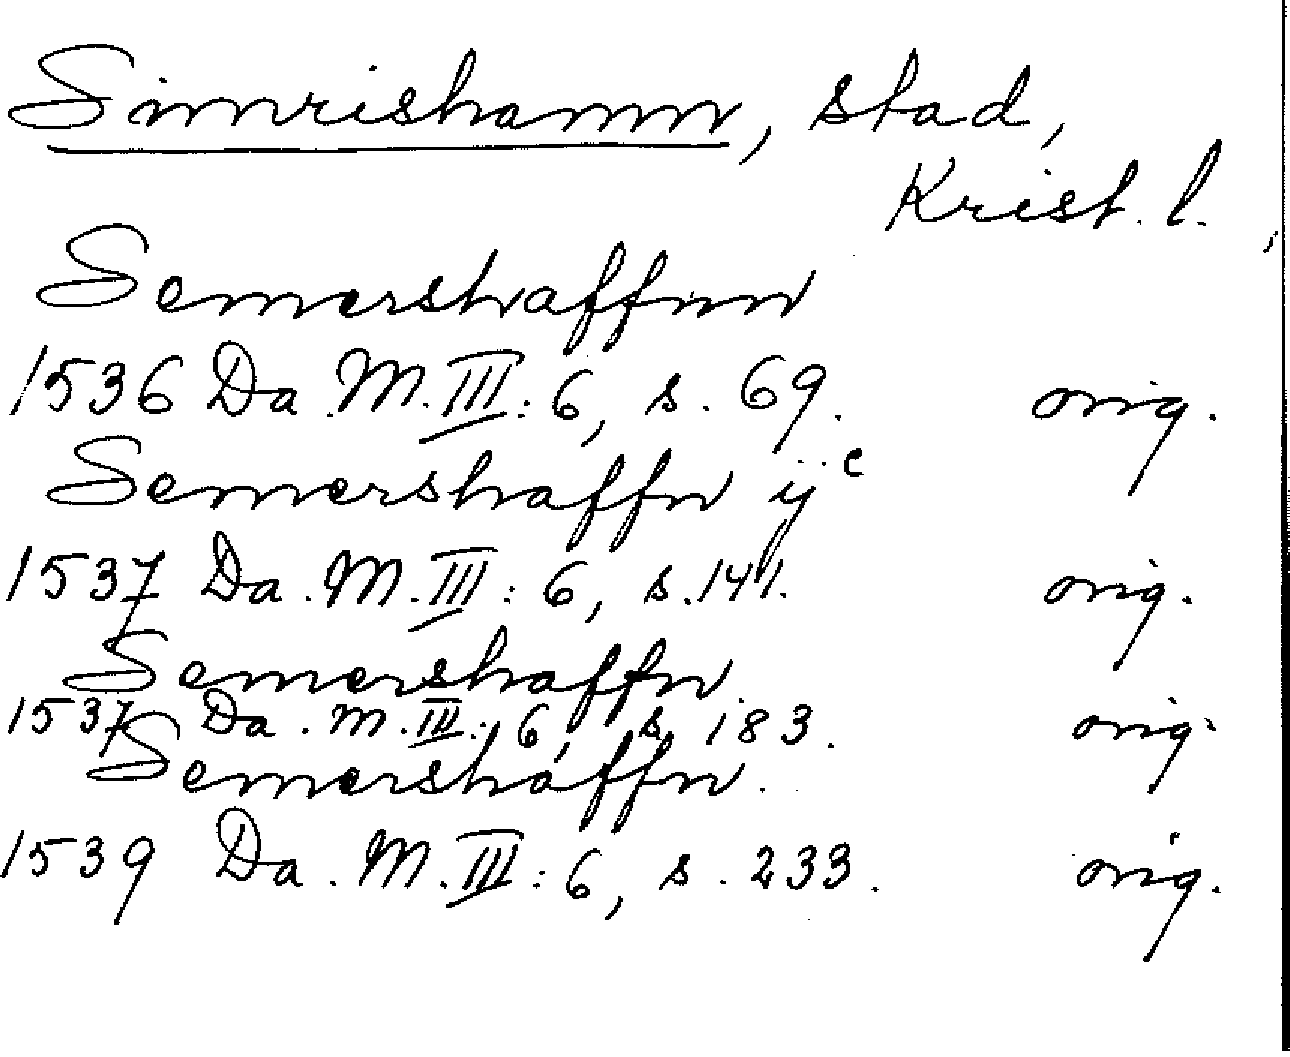 Simrishamn, stad,
Krist. l.
Semershaffnn
1536 Da. M. III: 6, s. 69. orig.
Semershaffn ijᶜ
1537 Da. M. III: 6, s. 141. orig.
Semershaffn
1537 Da. M. III: 6, s. 183. orig.
Semershaffn.
1539 Da. M. III: 6, s. 233. orig.